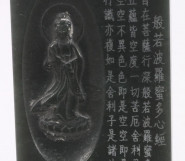 般若波羅蜜多心經
自在菩薩行深般若波羅蜜
五蘊皆空度一切苦厄舍利
空空不異色色即是空空
行識亦復如是舍利子是諸